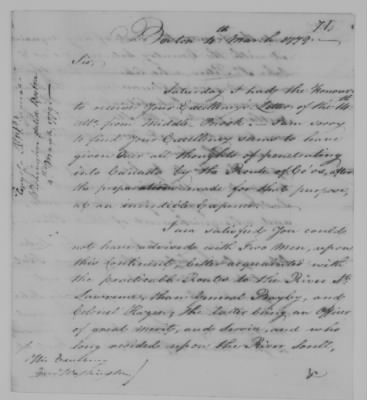 71.
Boston 4th March 1778.
Sir,
Saturday I had the Honour
to receive Your Excellencys Letter of the
Ulto. from Middle Brook — I am sorry
to find Your Excellency seems to have
given over all thoughts of penetrating
into Canada by the Route of Co'os, after
the preparations made for that purpose,
at an incredible Expence.
I am satisfied You could
not have advised with Two Men, upon
this Continent, better acquainted with
the practicable Routes to the River St.
Lawrence, than General Bayley, and
Colonel Hazen; the latter being an Officer
of great merit, and Service, and who
long resided upon the River Sorell,
His Excellency
Genl. Washington